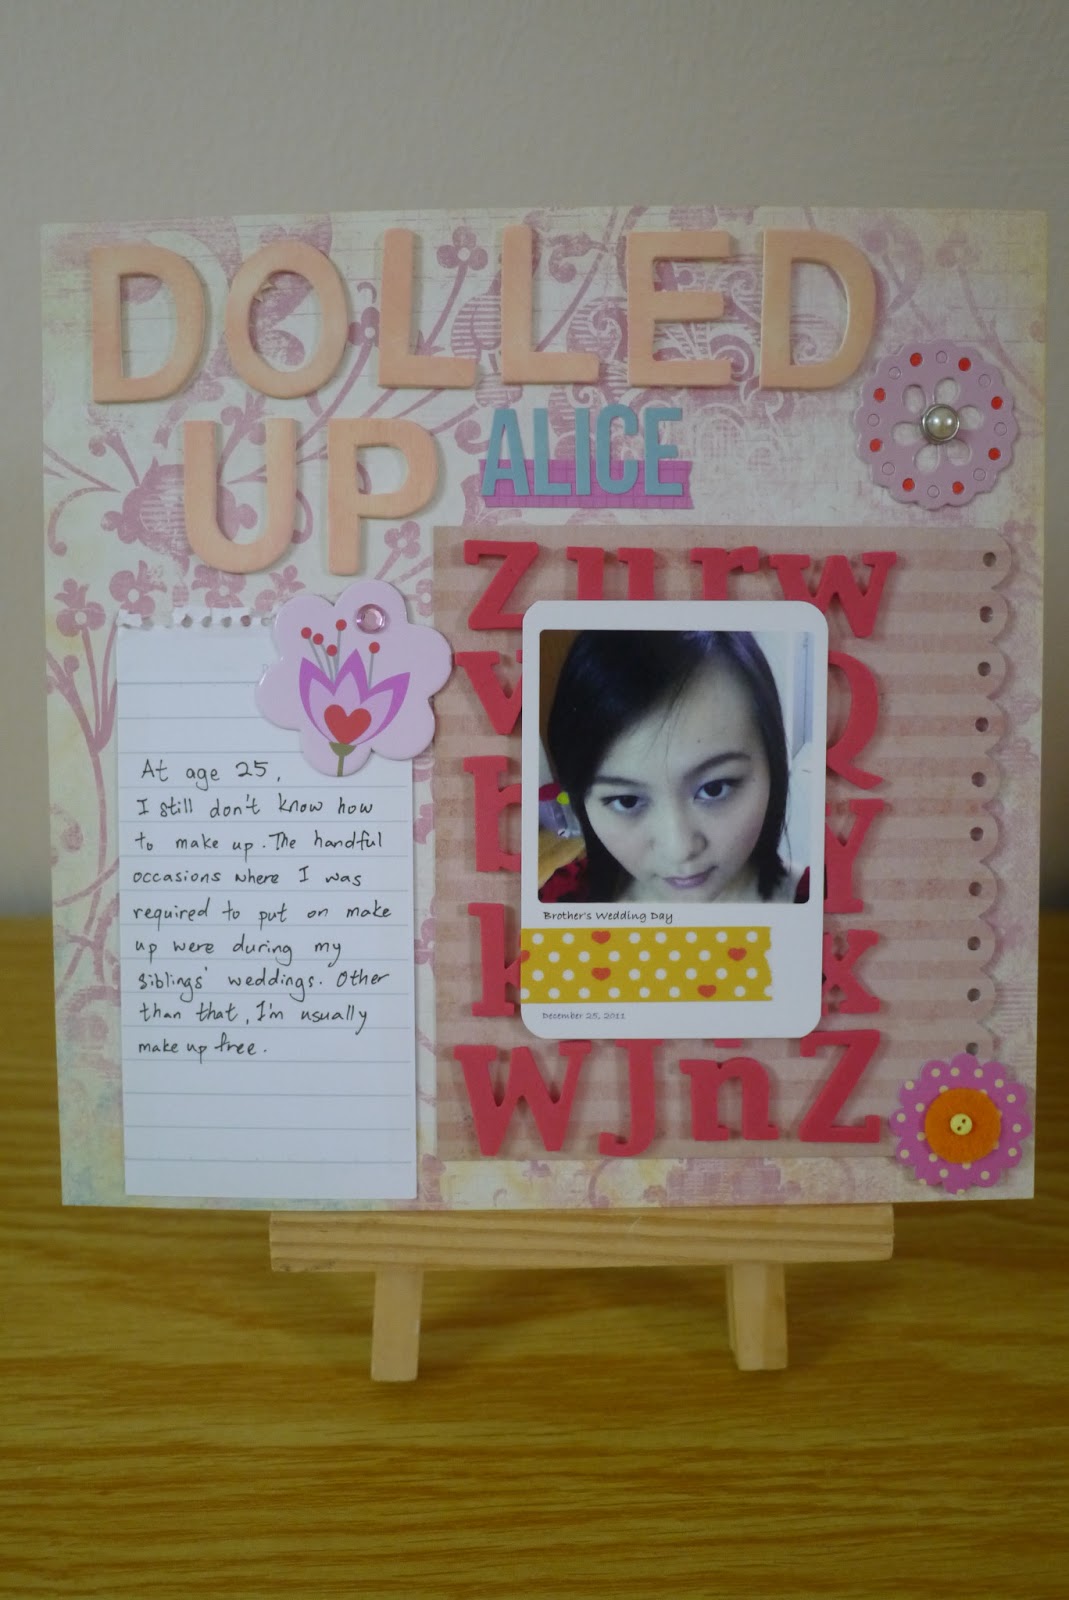 DOLLED
UP ALICE
At age 25,
I still don't know how
to make up. The handful
occasions where I was
required to put on make
up were during my
siblings' weddings. Other
than that, I'm usually
make up free.
z u r w
v Q
h Y
k x
W J n Z
Brother's Wedding Day
December 25, 2011